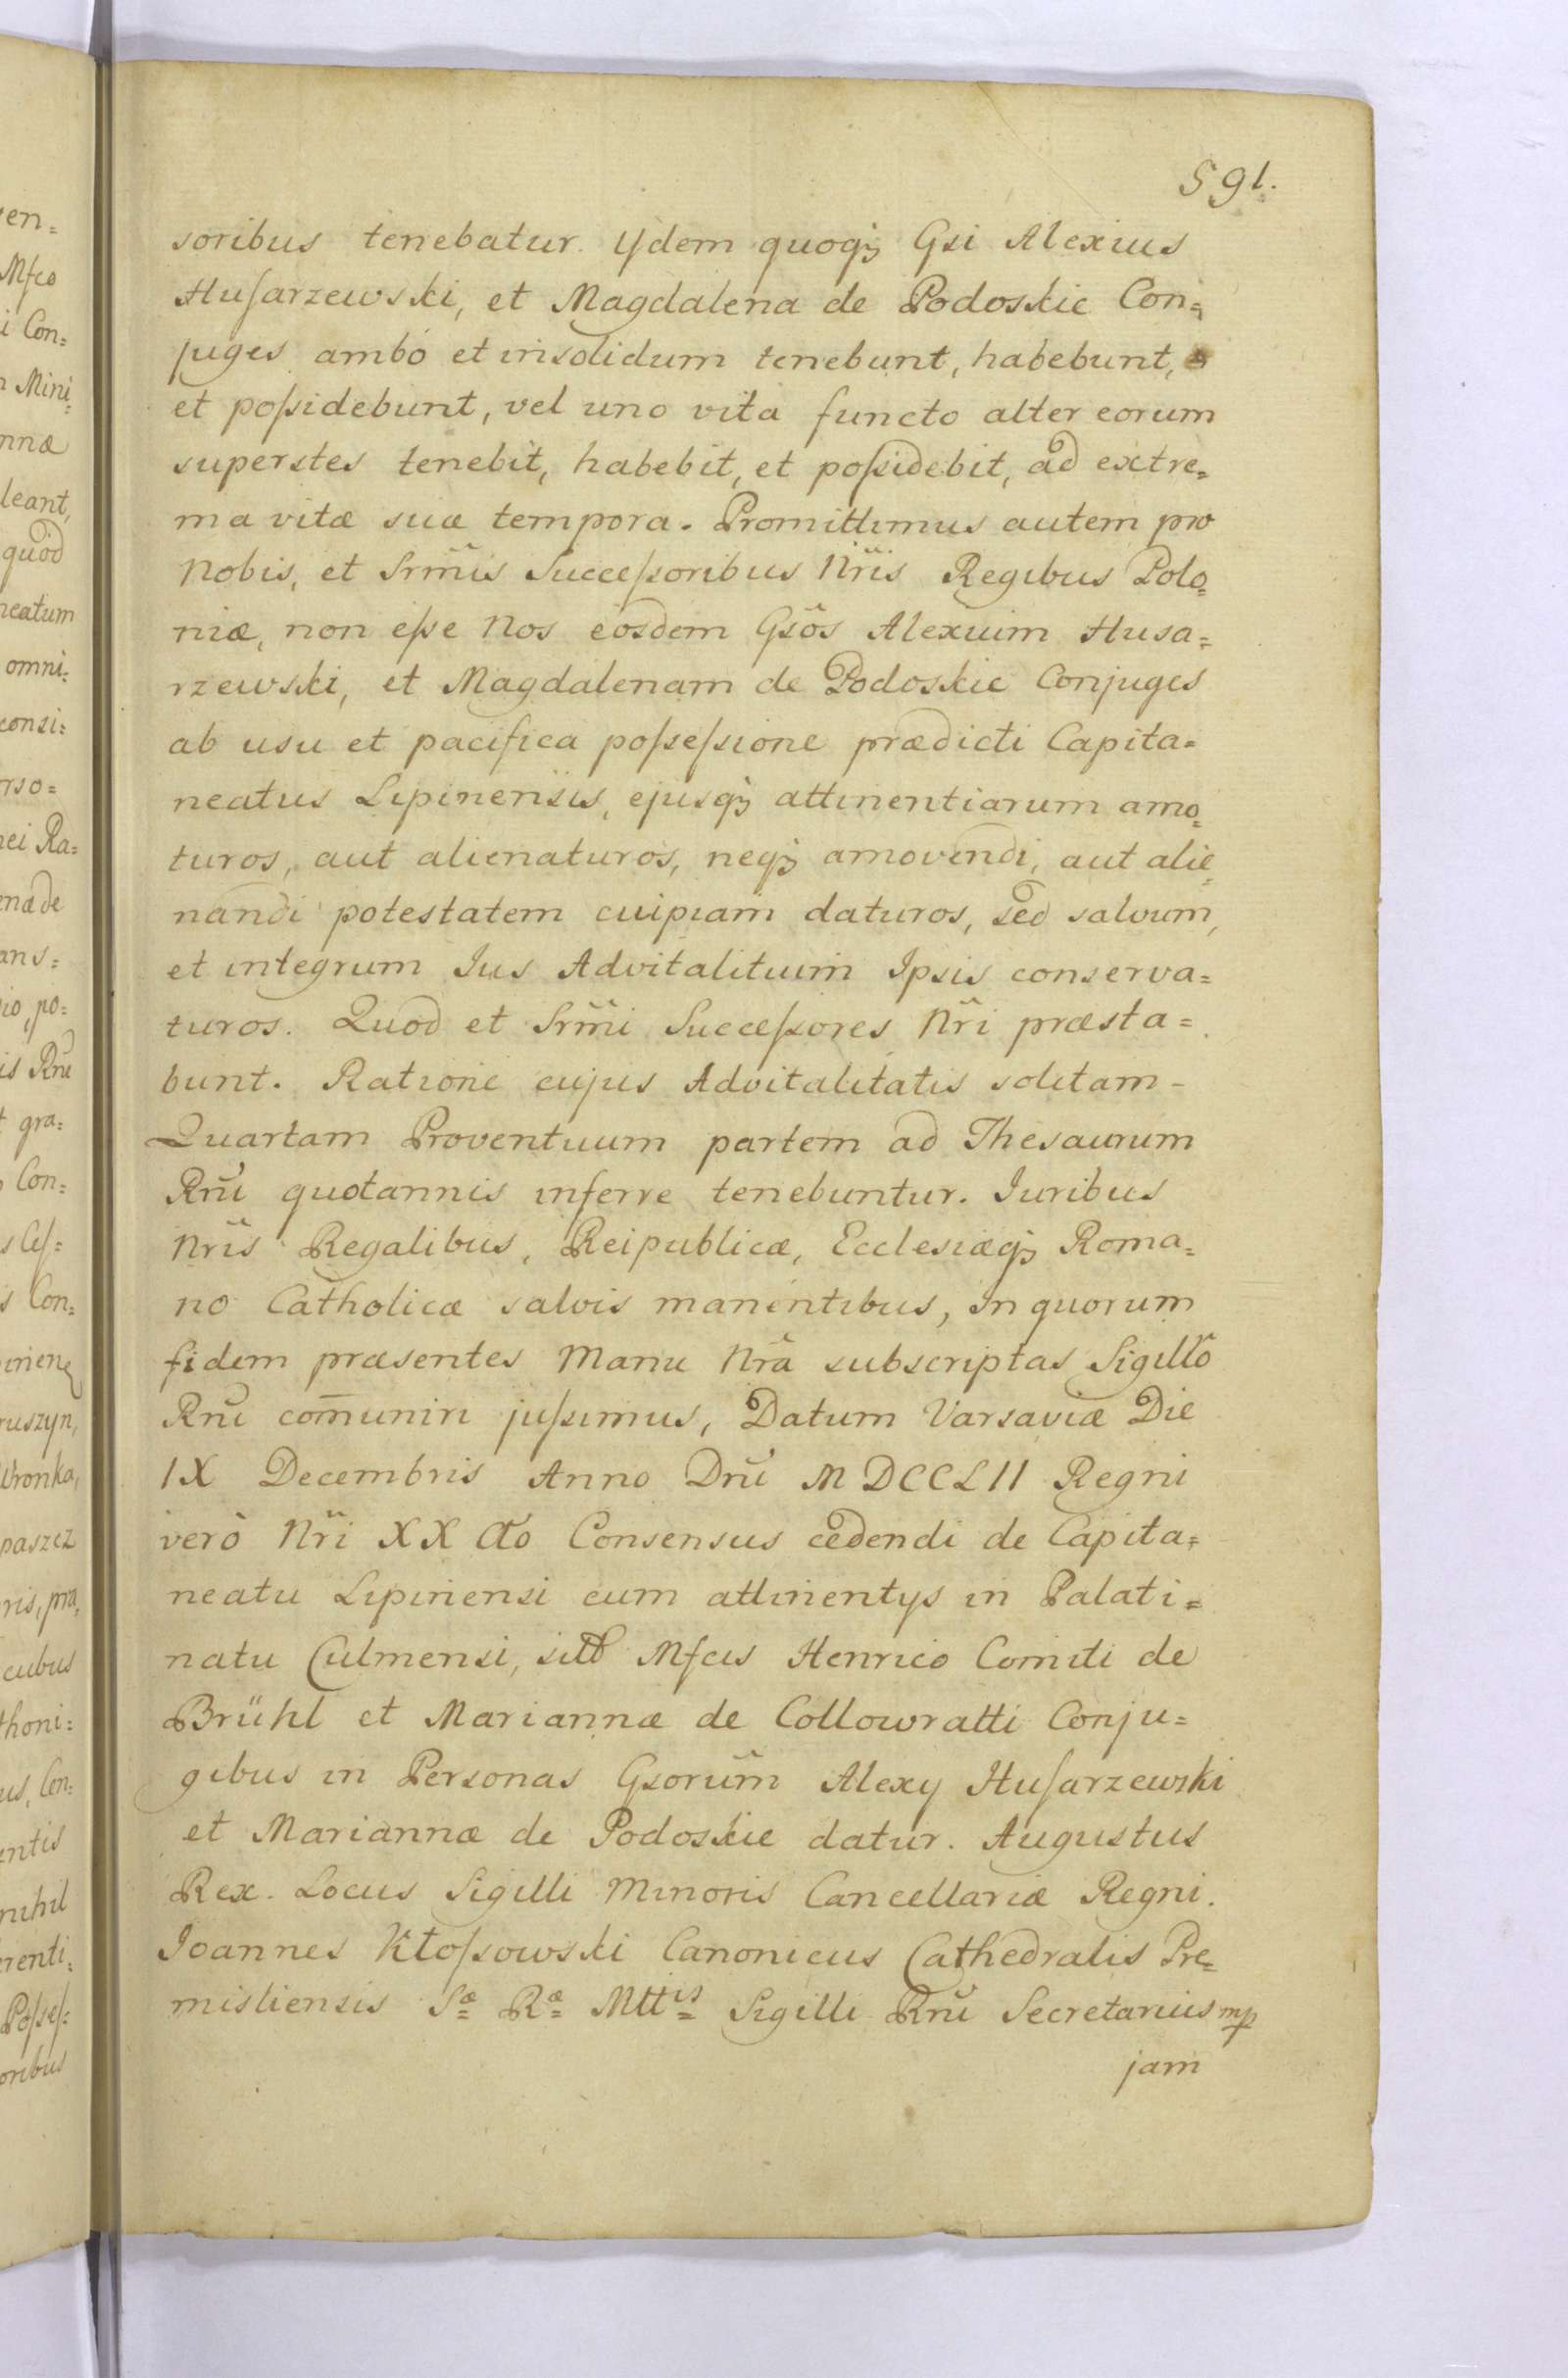 591.
soribus tenebatur. Ydem quoqꝫ Gsi Alexius
Huſarzewski, et Magdalena de Podoskie Con=
juges ambo et insolidum tenebunt, habebunt,
et poſsidebunt, vel uno vita functo alter eorum
superstes tenebit, habebit, et poſsidebit, ad extre=
ma vitæ suæ tempora. Promittimus autem pro
Nobis, et Srm̃is Succeſsoribus Nr̃is Regibus Polo=
niæ, non eſse Nos eosdem Gsos̃ Alexium Husa=
rzewski, et Magdalenam de Podoskie Conjuges
ab usu et pacifica poſseſsione prædicti Capita=
neatus Lipinensis, ejusqꝫ attinentiarum amo=
turos, aut alienaturos, neqꝫ amovendi, aut alie=
nandi potestatem cuipiam daturos, sed salvum,
et integrum Jus Advitalitium Ipsis conserva=
turos. Quod et Srm̃i Succeſsores Nr̃i præsta=
bunt. Ratione cujus Advitalitatis solitam-
Quartam Proventuum partem ad Thesaurum
Rñi quotannis inferre tenebuntur. Juribus
Nr̃is Regalibus, Reipublicæ, Ecclesiæqꝫ Roma=
no Catholicæ salvis manentibus, in quorum
fidem præsentes Manu Nr̃a subscriptas Sigillo
Rñi com̃uniri juſsimus, Datum Varsaviæ Die
IX Decembris Anno Dñi MDCCLII Regni
verò Nr̃i XX Cto Consensus cedendi de Capita=
neatu Lipinensi cum attinentys in Palati=
natu Culmensi, sitto Mfcis Henrico Comiti de
Brühl et Mariannæ de Collowratti Conju=
gibus in Personas Gsorum̃ Alexy Huſarzewski
et Mariannæ de Podoskie datur. Augustus
Rex. Locus Sigilli Minoris Cancellariæ Regni.
Joannes Kłoſsowski Canonicus Cathedralis Pre=
misliensis Sæ Ræ Mttis Sigilli Rñi Secretarius mp
jam